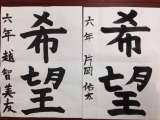 希望
六年 片岡 佑太
希望
六年 越智美友